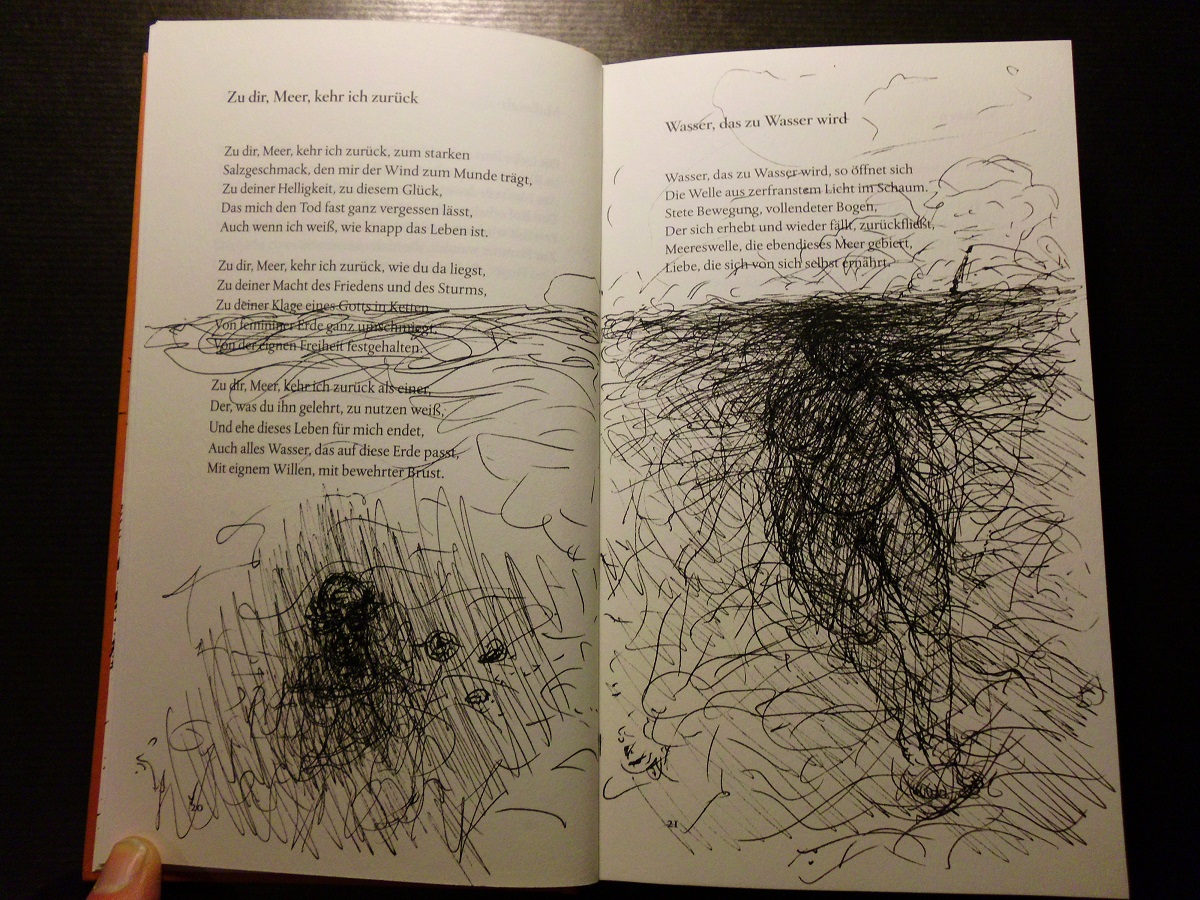 Zu dir, Meer, kehr ich zurück
Zu dir, Meer, kehr ich zurück, zum starken
Salzgeschmack, den mir der Wind zum Munde trägt,
Zu deiner Helligkeit, zu diesem Glück,
Das mich den Tod fast ganz vergessen lässt,
Auch wenn ich weiß, wie knapp das Leben ist.
Zu dir, Meer, kehr ich zurück, wie du da liegst,
Zu deiner Macht des Friedens und des Sturms,
Zu deiner Klage eines Gotts in Ketten,
Von femininer Erde ganz umschmiegt,
Von der eignen Freiheit festgehalten.
Zu dir, Meer, kehr ich zurück als einer,
Der, was du ihn gelehrt, zu nutzen weiß,
Und ehe dieses Leben für mich endet,
Auch alles Wasser, das auf diese Erde passt,
Mit eignem Willen, mit bewehrter Brust.
20
Wasser, das zu Wasser wird
Wasser, das zu Wasser wird, so öffnet sich
Die Welle aus zerfranstem Licht im Schaum.
Stete Bewegung, vollendeter Bogen,
Der sich erhebt und wieder fällt, zurückfließt,
Meereswelle, die ebendieses Meer gebiert,
Liebe, die sich von sich selbst ernährt.
21